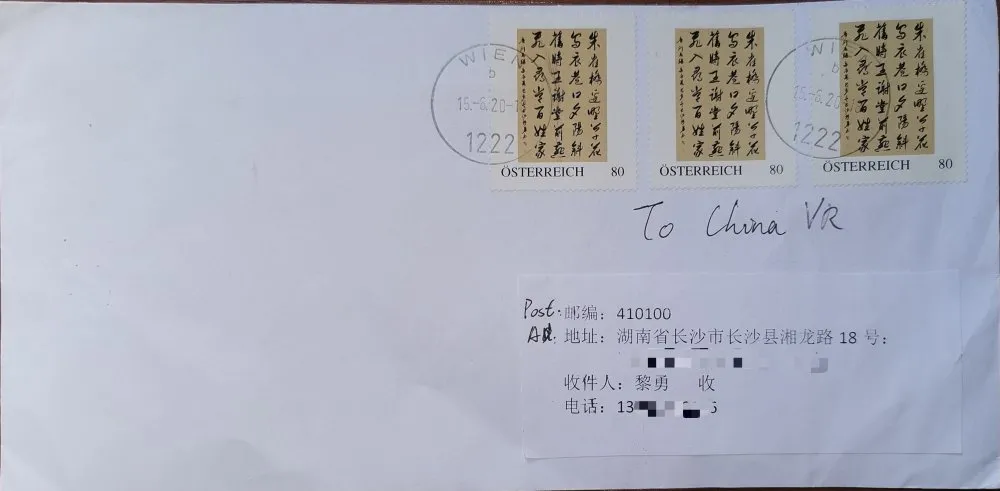 WIEN
b
15.-6.20-1
1222
朱雀桥边野草花
乌衣巷口夕阳斜
旧时王谢堂前燕
飞入寻常百姓家
ÖSTERREICH 80
朱雀桥边野草花
乌衣巷口夕阳斜
旧时王谢堂前燕
飞入寻常百姓家
ÖSTERREICH 80
WI
15.-6.20
1222
朱雀桥边野草花
乌衣巷口夕阳斜
旧时王谢堂前燕
飞入寻常百姓家
ÖSTERREICH 80
To China VR
Post: 邮编：410100
地址：湖南省长沙市长沙县湘龙路 18 号：
收件人：黎勇 收
电话：13